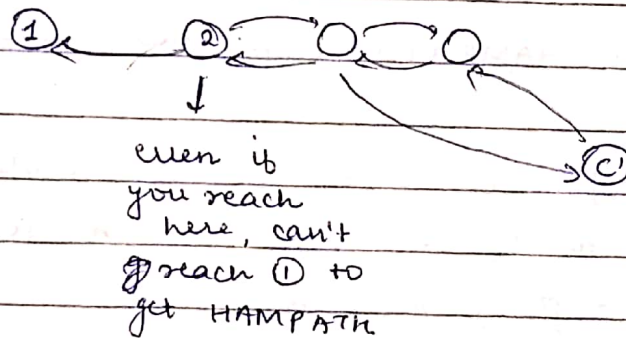 1 2
C'
even if
you reach
here, can't
reach ① to
get HAMPATH